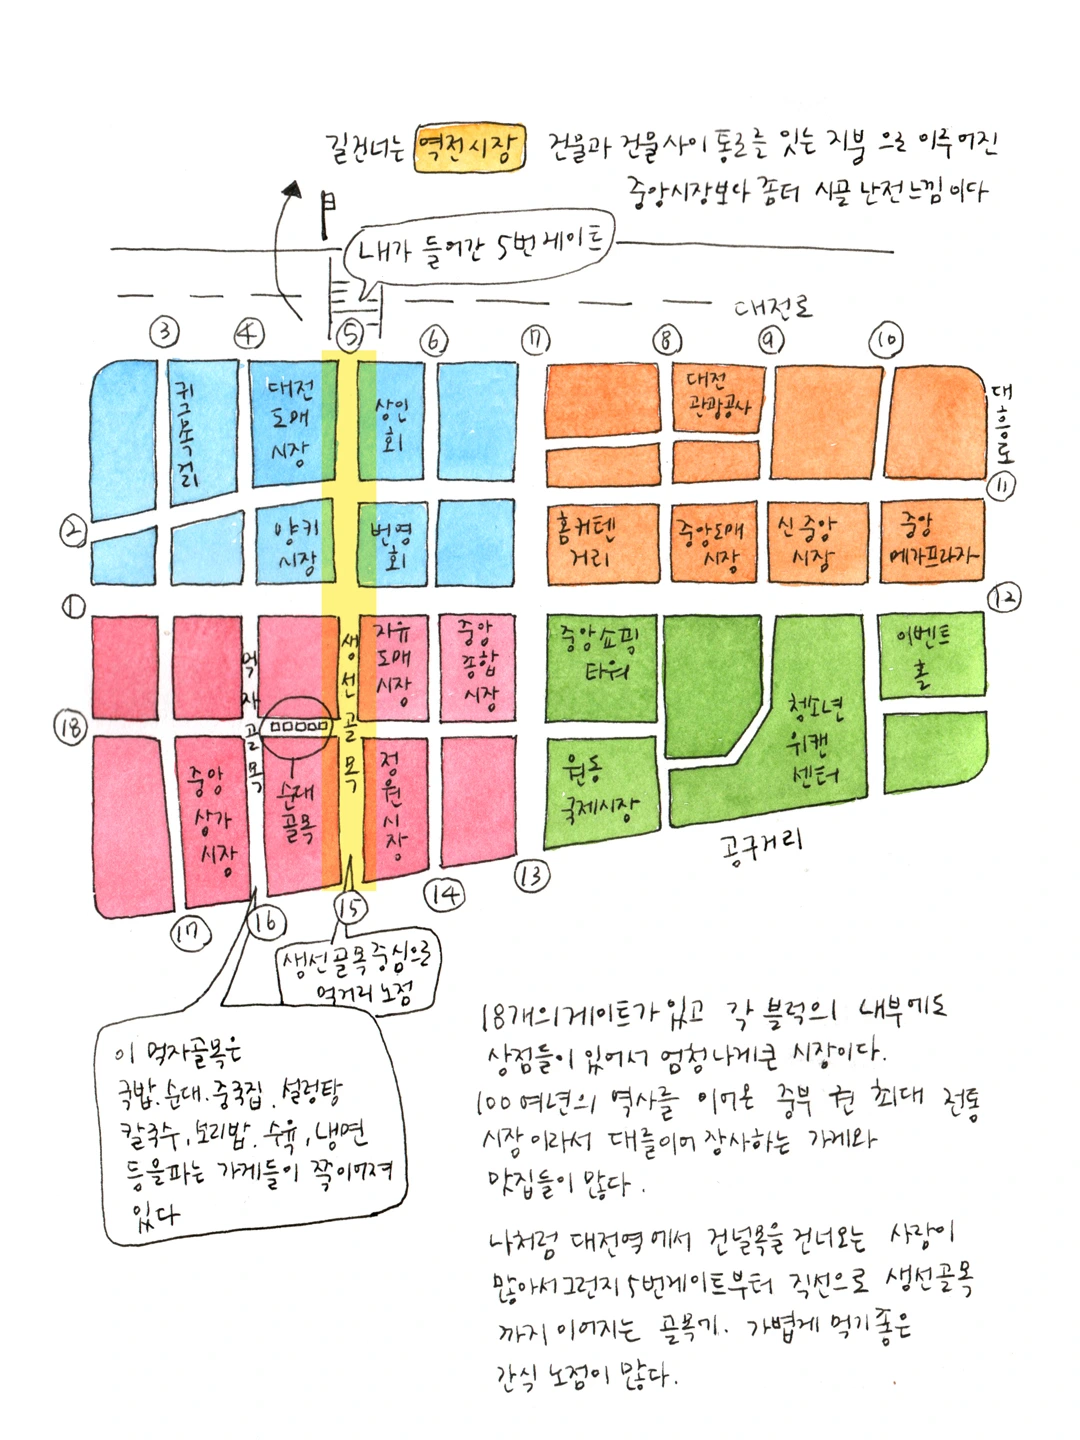 길건너는 역전시장 건물과 건물사이 통로를 잇는 지붕 으로 이루어진
중앙시장보다 좀더 시골 난전느낌이다
내가 들어간 5번게이트
대전로
③ ④ ⑤ ⑥ ⑰ ⑧ ⑨ ⑩
귀금속거리
대전
도매
시장
상인
회
대전
관광공사
대흥로
⑪
②
양키
시장
번영
회
홈커텐
거리
중앙도매
시장
신중앙
시장
중앙
메가프라자
①
⑫
먹자골목
생선골목
자유
도매
시장
중앙
종합
시장
중앙쇼핑
타워
이벤트
홀
⑱
중앙
상가
시장
순대
골목
정원시장
원동
국제시장
청소년
위캔
센터
공구거리
⑰ ⑯ ⑮ ⑭ ⑬
생선골목중심으로
먹거리노점
이 먹자골목은
국밥.순대.중국집.설렁탕
칼국수,보리밥.수육,냉면
등을파는 가게들이 쭉이어져
있다
18개의게이트가있고 각 블럭의 내부에도
상점들이 있어서 엄청나게큰 시장이다.
100여년의 역사를 이어온 중부 권 최대 전통
시장이라서 대를이어 장사하는 가게와
맛집들이 많다.
나처럼 대전역에서 건널목을건너오는 사람이
많아서그런지5번게이트부터 직선으로 생선골목
까지이어지는 골목기. 가볍게 먹기좋은
간식노점이 많다.